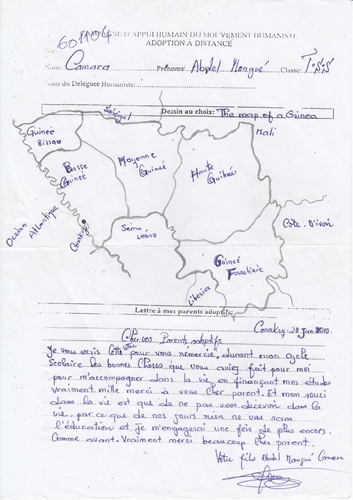 CAMPAGNE D'APPUI HUMAIN DU MOUVEMENT HUMANISTE
ADOPTION A DISTANCE
Nom: Camara Prénoms: Abdel Mangué Classe T.S.S
Nom du Delegué Humaniste:
Dessin au choix: The map of a Guinea
Sénégal
Mali
Guineé
Bissau
Basse
Guineé
Moyenne
Guineé
Haute
Guineé
Océan Atlantique
Conakry
Serra
Léone
Côte d'ivoire
Guineé
Forestiere
Liberia
Lettre à mes parents adoptifs:
Conakry, 28 Jan 2010.
Cher vos Parents adoptifs
Je vous ecris cette pour vous remercié, durant mon cycle
Scolaire les bonnes choses que vous aviez fait pour moi
pour m'accompagner dans la vie en finançant mes études
vraiment mille merci à vous cher parent. Et mon souci
dans la vie est que de ne pas vous décevoir dans la
vie. par ce que de nos jours rien ne vos sans
l'éducation et je m'engagerai une fois de plus encors.
Comme avant. Vraiment merci beaucoup cher parent.
Votre fils Abdel Mangué Camara